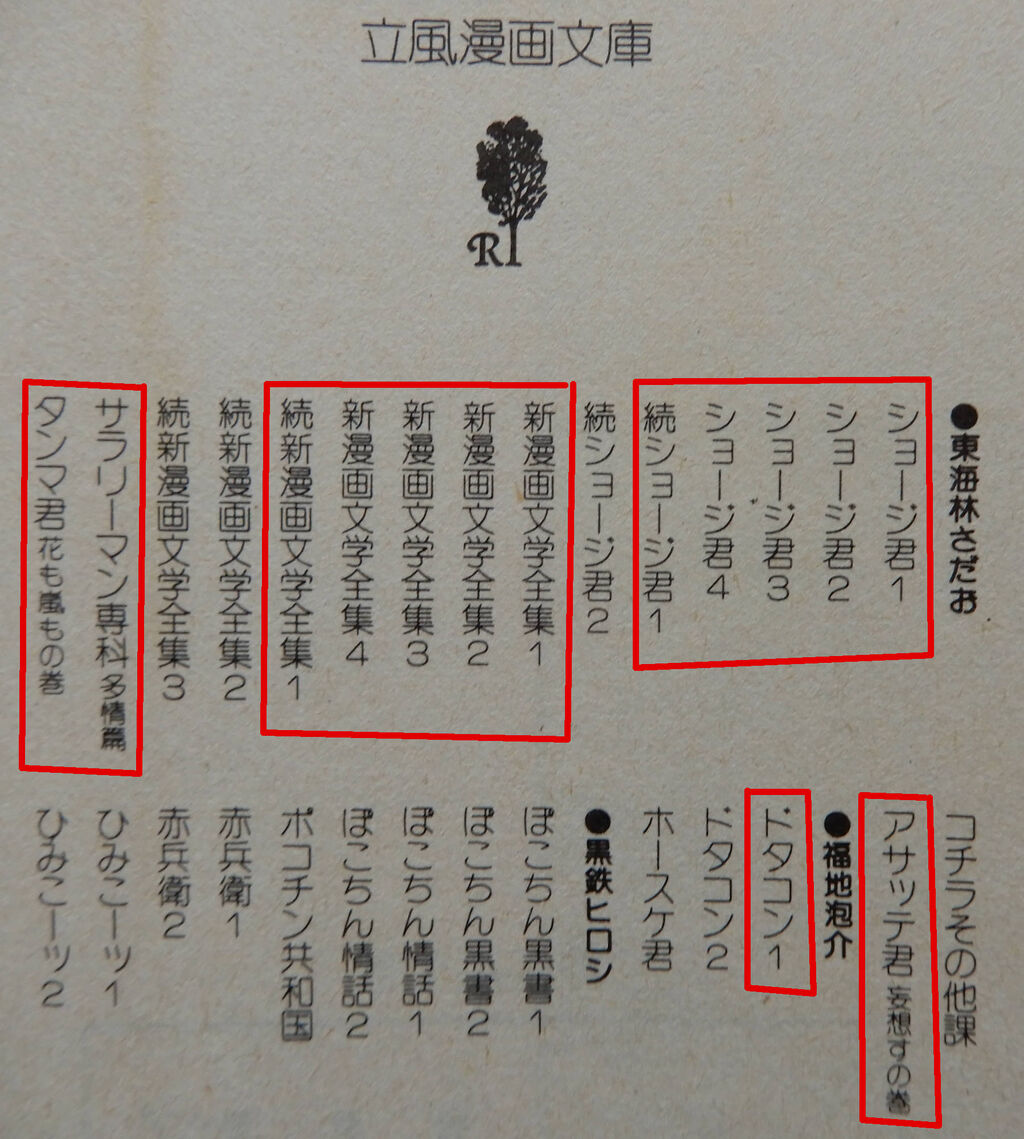 立風漫画文庫
R
●東海林さだお
ショージ君1
ショージ君2
ショージ君3
ショージ君4
続ショージ君1
続ショージ君2
新漫画文学全集1
新漫画文学全集2
新漫画文学全集3
新漫画文学全集4
続新漫画文学全集1
続新漫画文学全集2
続新漫画文学全集3
サラリーマン専科 多情篇
タンマ君 花も嵐もの巻
コチラその他課
アサッテ君 妄想すの巻
●福地泡介
ドタコン1
ドタコン2
ホースケ君
●黒鉄ヒロシ
ぽこちん黒書1
ぽこちん黒書2
ぽこちん情話1
ぽこちん情話2
ポコチン共和国
赤兵衛1
赤兵衛2
ひみこーッ1
ひみこーッ2